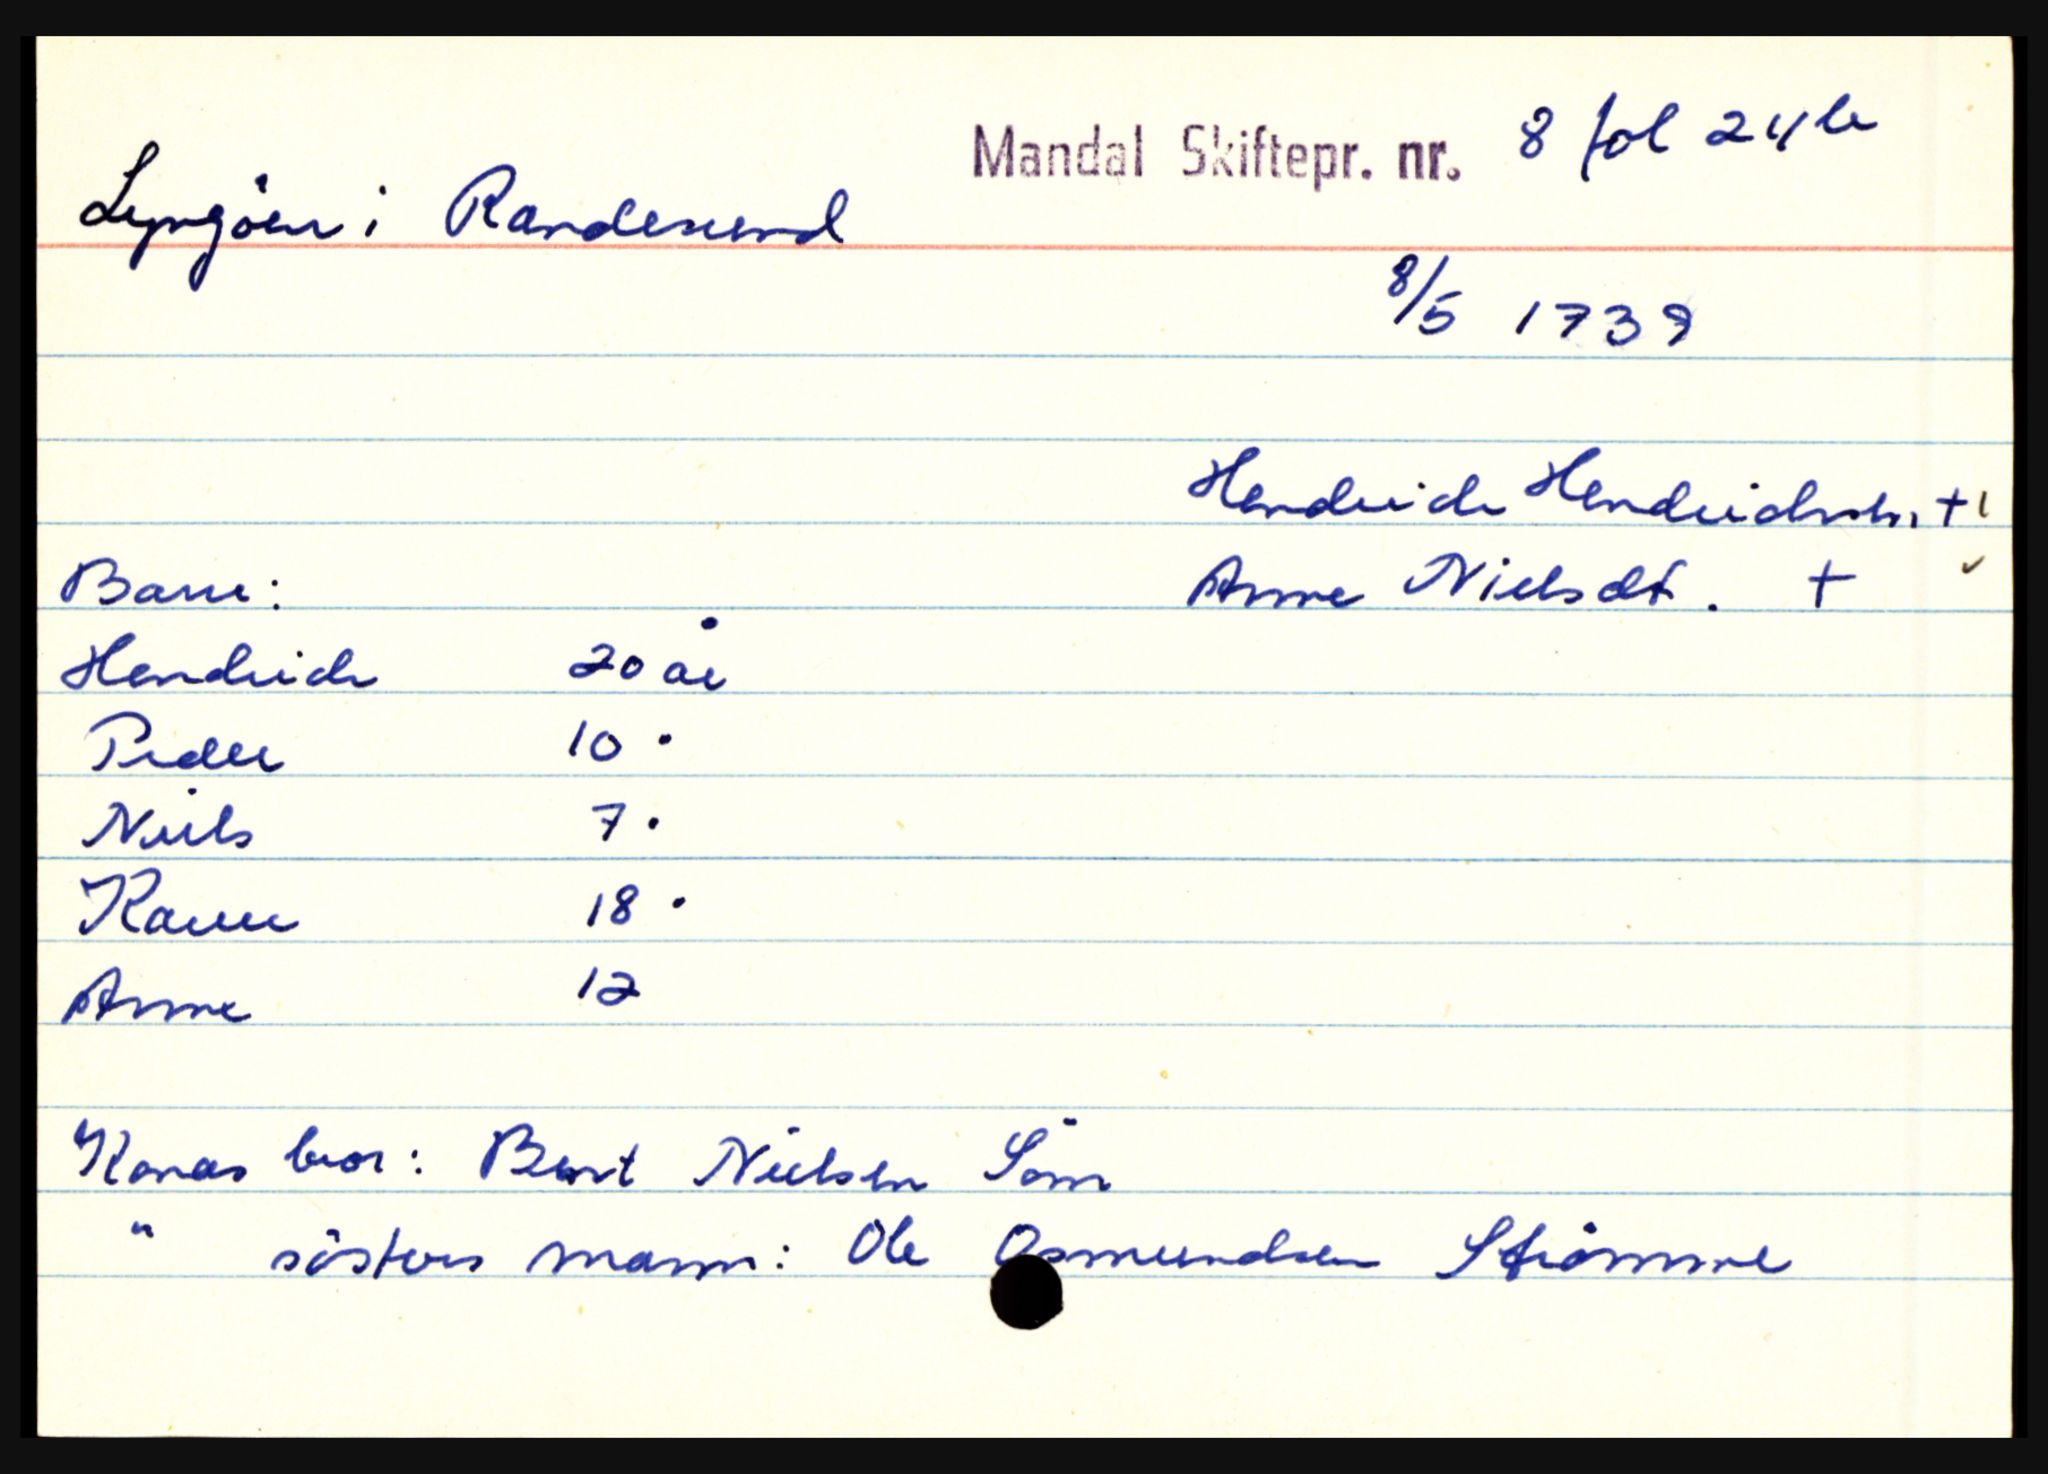 Mandal Skiftepr. nr. 8 fol 24b
Lyngöen i Randesund
8/5 1739
Hendrich Hendrichsen +
Barn: Anne Nielsdt. +
Hendrich 20 år
Peder 10 "
Niels 7 "
Karen 18 "
Anne 12
Konas bror: Bent Nielsen Söm
" sösters mann: Ole Osmundsen Strömme